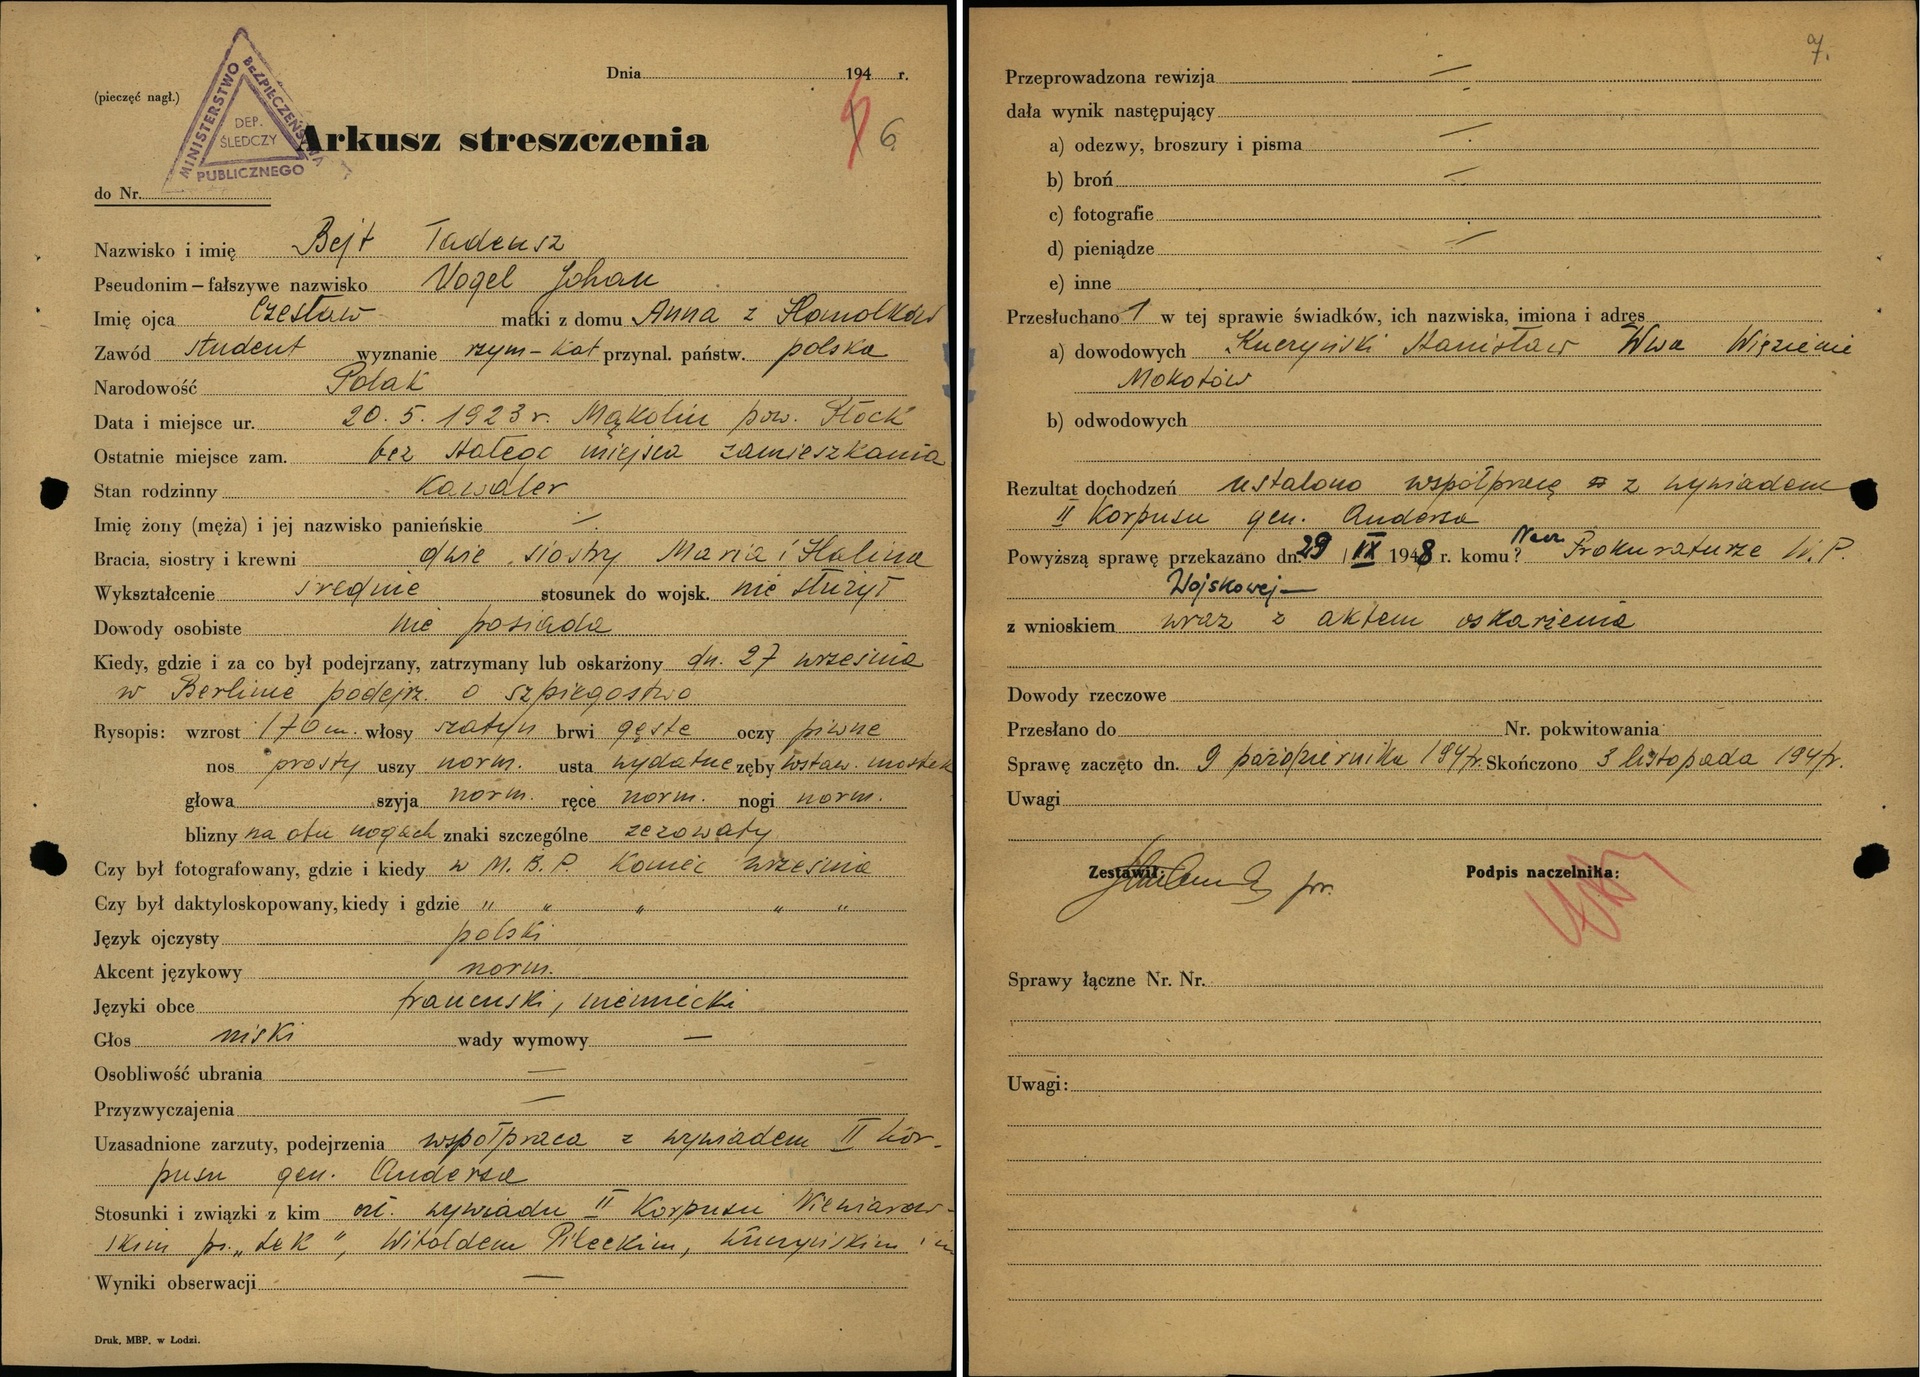 Dnia 194 r.
(pieczęć nagł.)
MINISTERSTWO BEZPIECZEŃSTWA PUBLICZNEGO
DEP. ŚLEDCZY
6
Arkusz streszczenia
do Nr.
Nazwisko i imię Bejt Tadeusz
Pseudonim – fałszywe nazwisko Vogel Johan
Imię ojca Czesław matki z domu Anna z Homolków
Zawód student wyznanie rzym-kat przynal. państw. polska
Narodowość Polak
Data i miejsce ur. 20. 5. 1923 r. Mąkolin pow. Płock
Ostatnie miejsce zam. bez stałego miejsca zamieszkania
Stan rodzinny kawaler
Imię żony (męża) i jej nazwisko panieńskie
Bracia, siostry i krewni dwie siostry Maria i Halina
Wykształcenie średnie stosunek do wojsk. nie służył
Dowody osobiste nie posiada
Kiedy, gdzie i za co był podejrzany, zatrzymany lub oskarżony dn. 27 września
w Berlinie podejrz. o szpiegostwo
Rysopis: wzrost 170 m. włosy szatyn brwi gęste oczy piwne
nos prosty uszy norm. usta wydatne zęby wstaw. mostek
głowa szyja norm. ręce norm. nogi norm.
blizny na obu nogach znaki szczególne zezowaty
Czy był fotografowany, gdzie i kiedy w M. B. P. koniec września
Czy był daktyloskopowany, kiedy i gdzie " " " " "
Język ojczysty polski
Akcent językowy norm.
Języki obce francuski, niemiecki
Głos niski wady wymowy —
Osobliwość ubrania —
Przyzwyczajenia —
Uzasadnione zarzuty, podejrzenia współpraca z wywiadem II Kor-
pusu gen. Andersa
Stosunki i związki z kim of. wywiadu II Korpusu Niewiarow-
skim ps. „Łek", Witoldem Pileckim, Kuczyńskim i in
Wyniki obserwacji —
Druk. MBP. w Łodzi.
7.
Przeprowadzona rewizja —
dała wynik następujący
a) odezwy, broszury i pisma —
b) broń —
c) fotografie
d) pieniądze —
e) inne
Przesłuchano 1 w tej sprawie świadków, ich nazwiska, imiona i adres
a) dowodowych Kuczyński Stanisław Wwa Więzienie
Mokotów
b) odwodowych
Rezultat dochodzeń ustalono współpracę z wywiadem
II Korpusu gen. Andersa
Powyższą sprawę przekazano dn. 29 / IX 1948 r. komu? Nacz. Prokuraturze W. P.
Wojskowej —
z wnioskiem wraz z aktem oskarżenia
Dowody rzeczowe
Przesłano do Nr. pokwitowania
Sprawę zaczęto dn. 9 października 1947 r. Skończono 3 listopada 1947 r.
Uwagi
Zestawił: Podpis naczelnika:
Sprawy łączne Nr. Nr.
Uwagi: